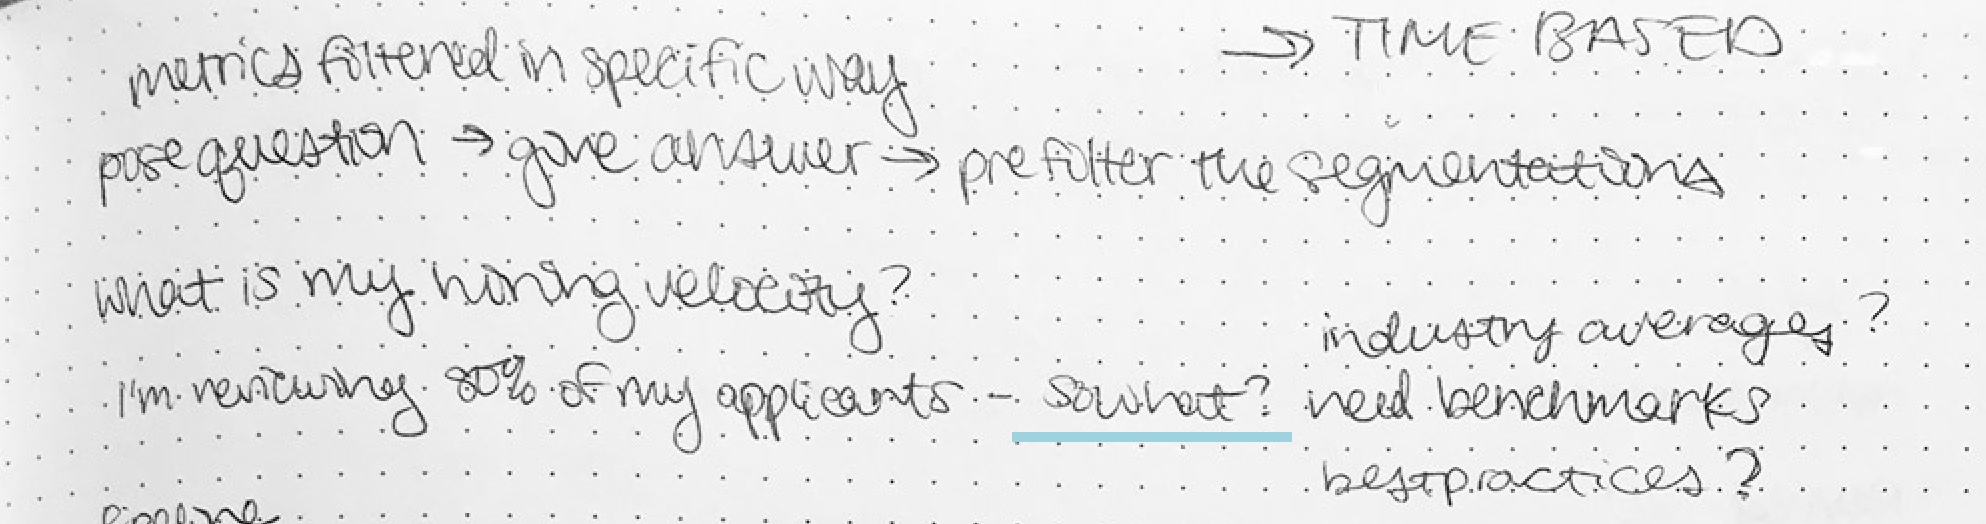 metrics filtered in specific way → TIME BASED
pose question → give answer → prefilter the segmentations
what is my hiring velocity?
industry averages?
I'm reviewing 80% of my applicants - so what? need benchmarks
best practices?